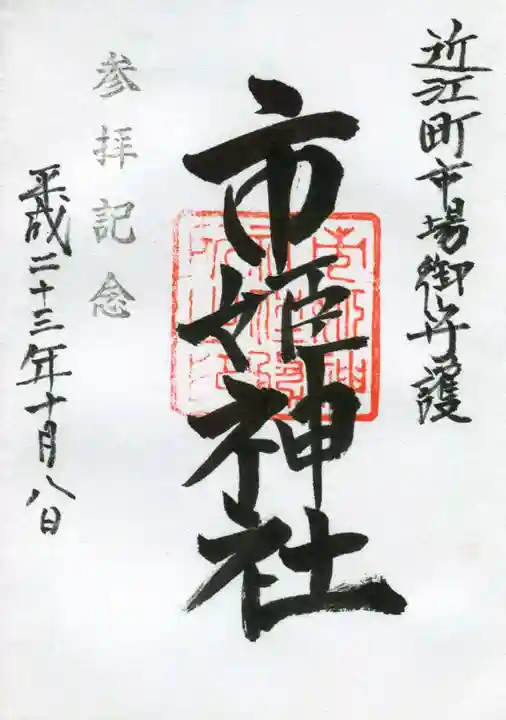 近江町市場御守護
市姫神社
参拝記念
平成二十三年十月八日